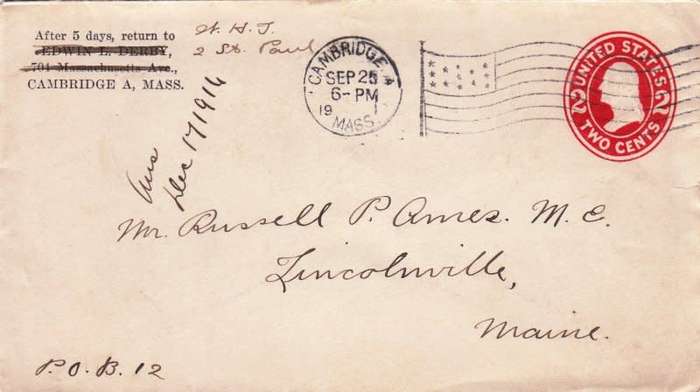 After 5 days, return to
EDWIN L. DERBY,
701 Massachusetts Ave.,
CAMBRIDGE A, MASS.
W. H. J.
2 St. Paul
CAMBRIDGE A
SEP 25
6-PM
19 1
MASS.
UNITED STATES
2 2
TWO CENTS
Ans
Dec 17 1916
Mr. Russell P. Ames. M. C.
Lincolnville,
Maine.
P.O.B. 12